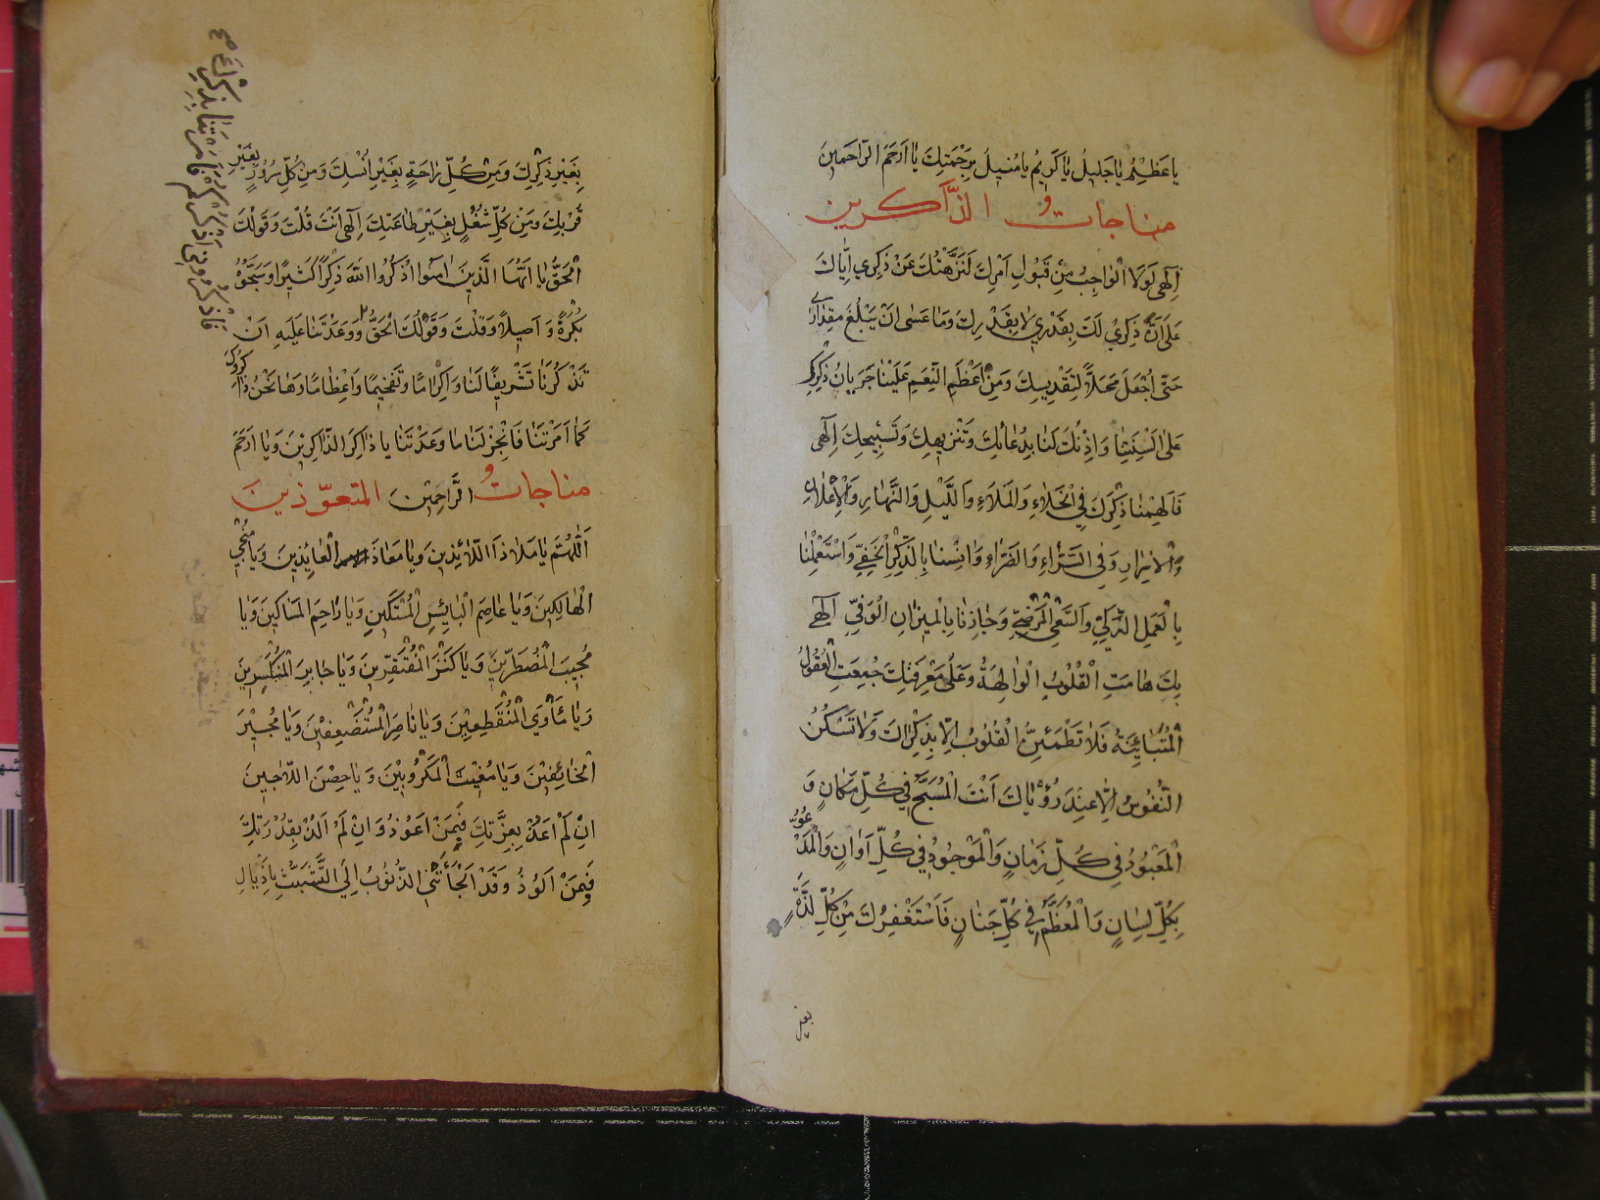 يا عَظيمُ يا جَليلُ يا كَريمُ يا مُنيلُ بِرَحْمَتِكَ يا اَرْحَمَ الرّاحِمينَ
مناجاتُ الذّاكرين
اِلٰهي لَوْلَا الْواجِبُ مِنْ قَبُولِ اَمْرِكَ لَنَزَّهْتُكَ عَنْ ذِكْري اِيّاكَ
عَلىٰ اَنَّ ذِكْري لَكَ بِقَدْري لا بِقَدْرِكَ وَما عَسىٰ اَنْ يَبْلُغَ مِقْداري
حَتّىٰ اُجْعَلَ مَحَلّاً لِتَقْديسِكَ وَمِنْ اَعْظَمِ النِّعَمِ عَلَيْنا جَرَيانُ ذِكْرِكَ
عَلىٰ اَلْسِنَتِنا وَاِذْنُكَ لَنا بِدُعائِكَ وَتَنْزيهِكَ وَتَسْبيحِكَ اِلٰهي
فَاَلْهِمْنا ذِكْرَكَ فِي الْخَلاءِ وَالْمَلاءِ وَاللَّيْلِ وَالنَّهارِ وَالْاِعْلانِ
وَالْاِسْرارِ وَفِي السَّرّاءِ وَالضَّرّاءِ وَانِسْنا بِالذِّكْرِ الْخَفِيِّ وَاسْتَعْمِلْنا
بِالْعَمَلِ الزَّكِيِّ وَالسَّعْيِ الْمَرْضِيِّ وَجازِنا بِالْميزانِ الْوَفِيِّ اِلٰهي
بِكَ هامَتِ الْقُلُوبُ الْوالِهَةُ وَعَلىٰ مَعْرِفَتِكَ جُمِعَتِ الْعُقُولُ
الْمُتَبايِنَةُ فَلا تَطْمَئِنُّ الْقُلُوبُ اِلّا بِذِكْراكَ وَلا تَسْكُنُ
النُّفُوسُ اِلّا عِنْدَ رُؤْياكَ اَنْتَ الْمُسَبَّحُ في كُلِّ مَكانٍ وَ
الْمَعْبُودُ في كُلِّ زَمانٍ وَالْمَوْجُودُ في كُلِّ اَوانٍ وَالْمَدْعُوُّ
بِكُلِّ لِسانٍ وَالْمُعَظَّمُ في كُلِّ جَنانٍ فَاَسْتَغْفِرُكَ مِنْ كُلِّ لَذَّةٍ
بغير
بِغَيْرِ ذِكْرِكَ وَمِنْ كُلِّ راحَةٍ بِغَيْرِ اُنْسِكَ وَمِنْ كُلِّ سُرُورٍ بِغَيْرِ
قُرْبِكَ وَمِنْ كُلِّ شُغْلٍ بِغَيْرِ طاعَتِكَ اِلٰهي اَنْتَ قُلْتَ وَقَوْلُكَ
الْحَقُّ يا اَيُّهَا الَّذينَ اٰمَنُوا اذْكُرُوا اللهَ ذِكْراً كَثيراً وَسَبِّحُوهُ
بُكْرَةً وَاَصيلاً وَقُلْتَ وَقَوْلُكَ الْحَقُّ وَوَعَدْتَنا عَلَيْهِ اَنْ
تَذْكُرَنا تَشْريفًا لَنا وَاِكْرامًا وَتَفْخيمًا وَاِعْظامًا وَها نَحْنُ ذاكِرُوكَ
كَما اَمَرْتَنا فَاَنْجِزْ لَنا ما وَعَدْتَنا يا ذاكِرَ الذّاكِرينَ وَيا اَرْحَمَ
الرّاحِمينَ مناجاتُ المتعوّذينَ
اَللّٰهُمَّ يا مَلاذَ اللّائِذينَ وَيا مَعاذَ الْعائِذينَ وَيا مُنْجِيَ
الْهالِكينَ وَيا عاصِمَ الْبائِسِ الْمُسْتَكينِ وَيا راحِمَ الْمَساكينِ وَيا
مُجيبَ الْمُضْطَرّينَ وَيا كَنْزَ الْمُفْتَقِرينَ وَيا جابِرَ الْمُنْكَسِرينَ
وَيا مَأْوَى الْمُنْقَطِعينَ وَيا ناصِرَ الْمُسْتَضْعَفينَ وَيا مُجيرَ
الْخائِفينَ وَيا مُغيثَ الْمَكْرُوبينَ وَيا حِصْنَ اللّاجينَ
اِنْ لَمْ اَعُذْ بِعِزَّتِكَ فَبِمَنْ اَعُوذُ وَاِنْ لَمْ اَلُذْ بِقُدْرَتِكَ
فَبِمَنْ اَلُوذُ وَقَدْ اَلْجَأَتْنِي الذُّنُوبُ اِلَى التَّشَبُّثِ بِاَذْيالِ
فَاذْكُرُوني اَذْكُرْكُمْ فَاَمَرْتَنا بِذِكْرِكَ صح